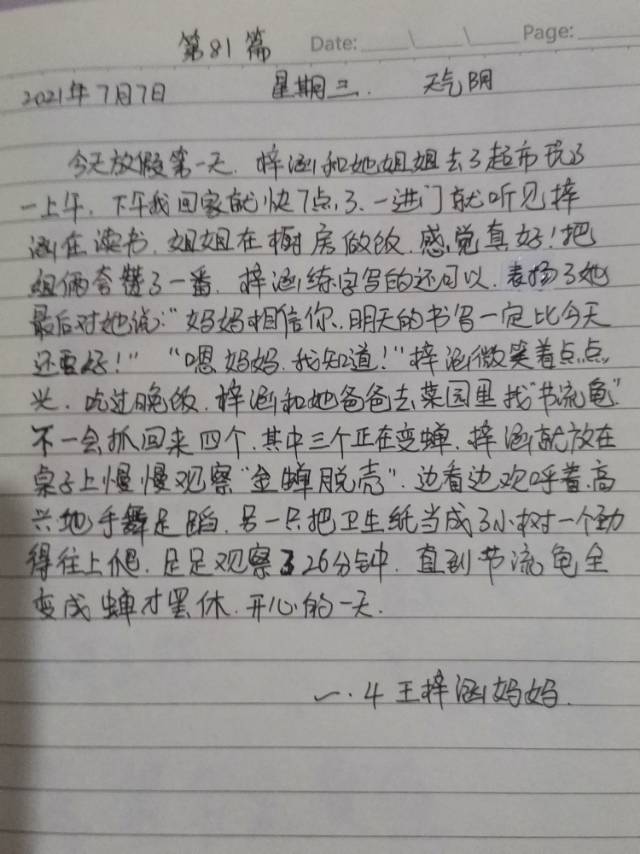 第81篇 Date: Page:
2021年7月7日 星期三. 天气阴
今天放假第一天. 梓涵和她姐姐去了超市玩了
一上午. 下午我回家就快7点了. 一进门就听见梓
涵在读书. 姐姐在橱房做饭. 感觉真好! 把
姐俩夸赞了一番. 梓涵练字写的还可以. 表扬了她
最后对她说:"妈妈相信你, 明天的书写一定比今天
还要好!" "嗯妈妈. 我知道!"梓涵微笑着点点
头. 吃过晚饭. 梓涵和她爸爸去菜园里找"节流龟"
不一会抓回来四个. 其中三个正在变蝉. 梓涵就放在
桌子上慢慢观察"金蝉脱壳". 边看边欢呼着. 高
兴地手舞足蹈. 另一只把卫生纸当成了小树一个劲
得往上爬. 足足观察了26分钟. 直到节流龟全
变成蝉才罢休. 开心的一天.
一.4 王梓涵妈妈.